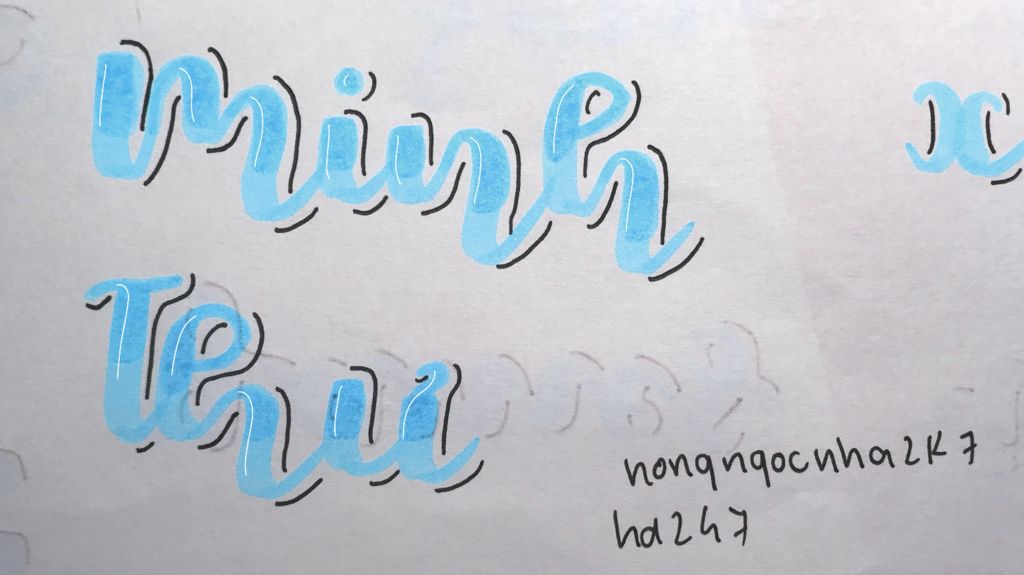 Minh
Thư
x
nongngocnha2k7
hd247